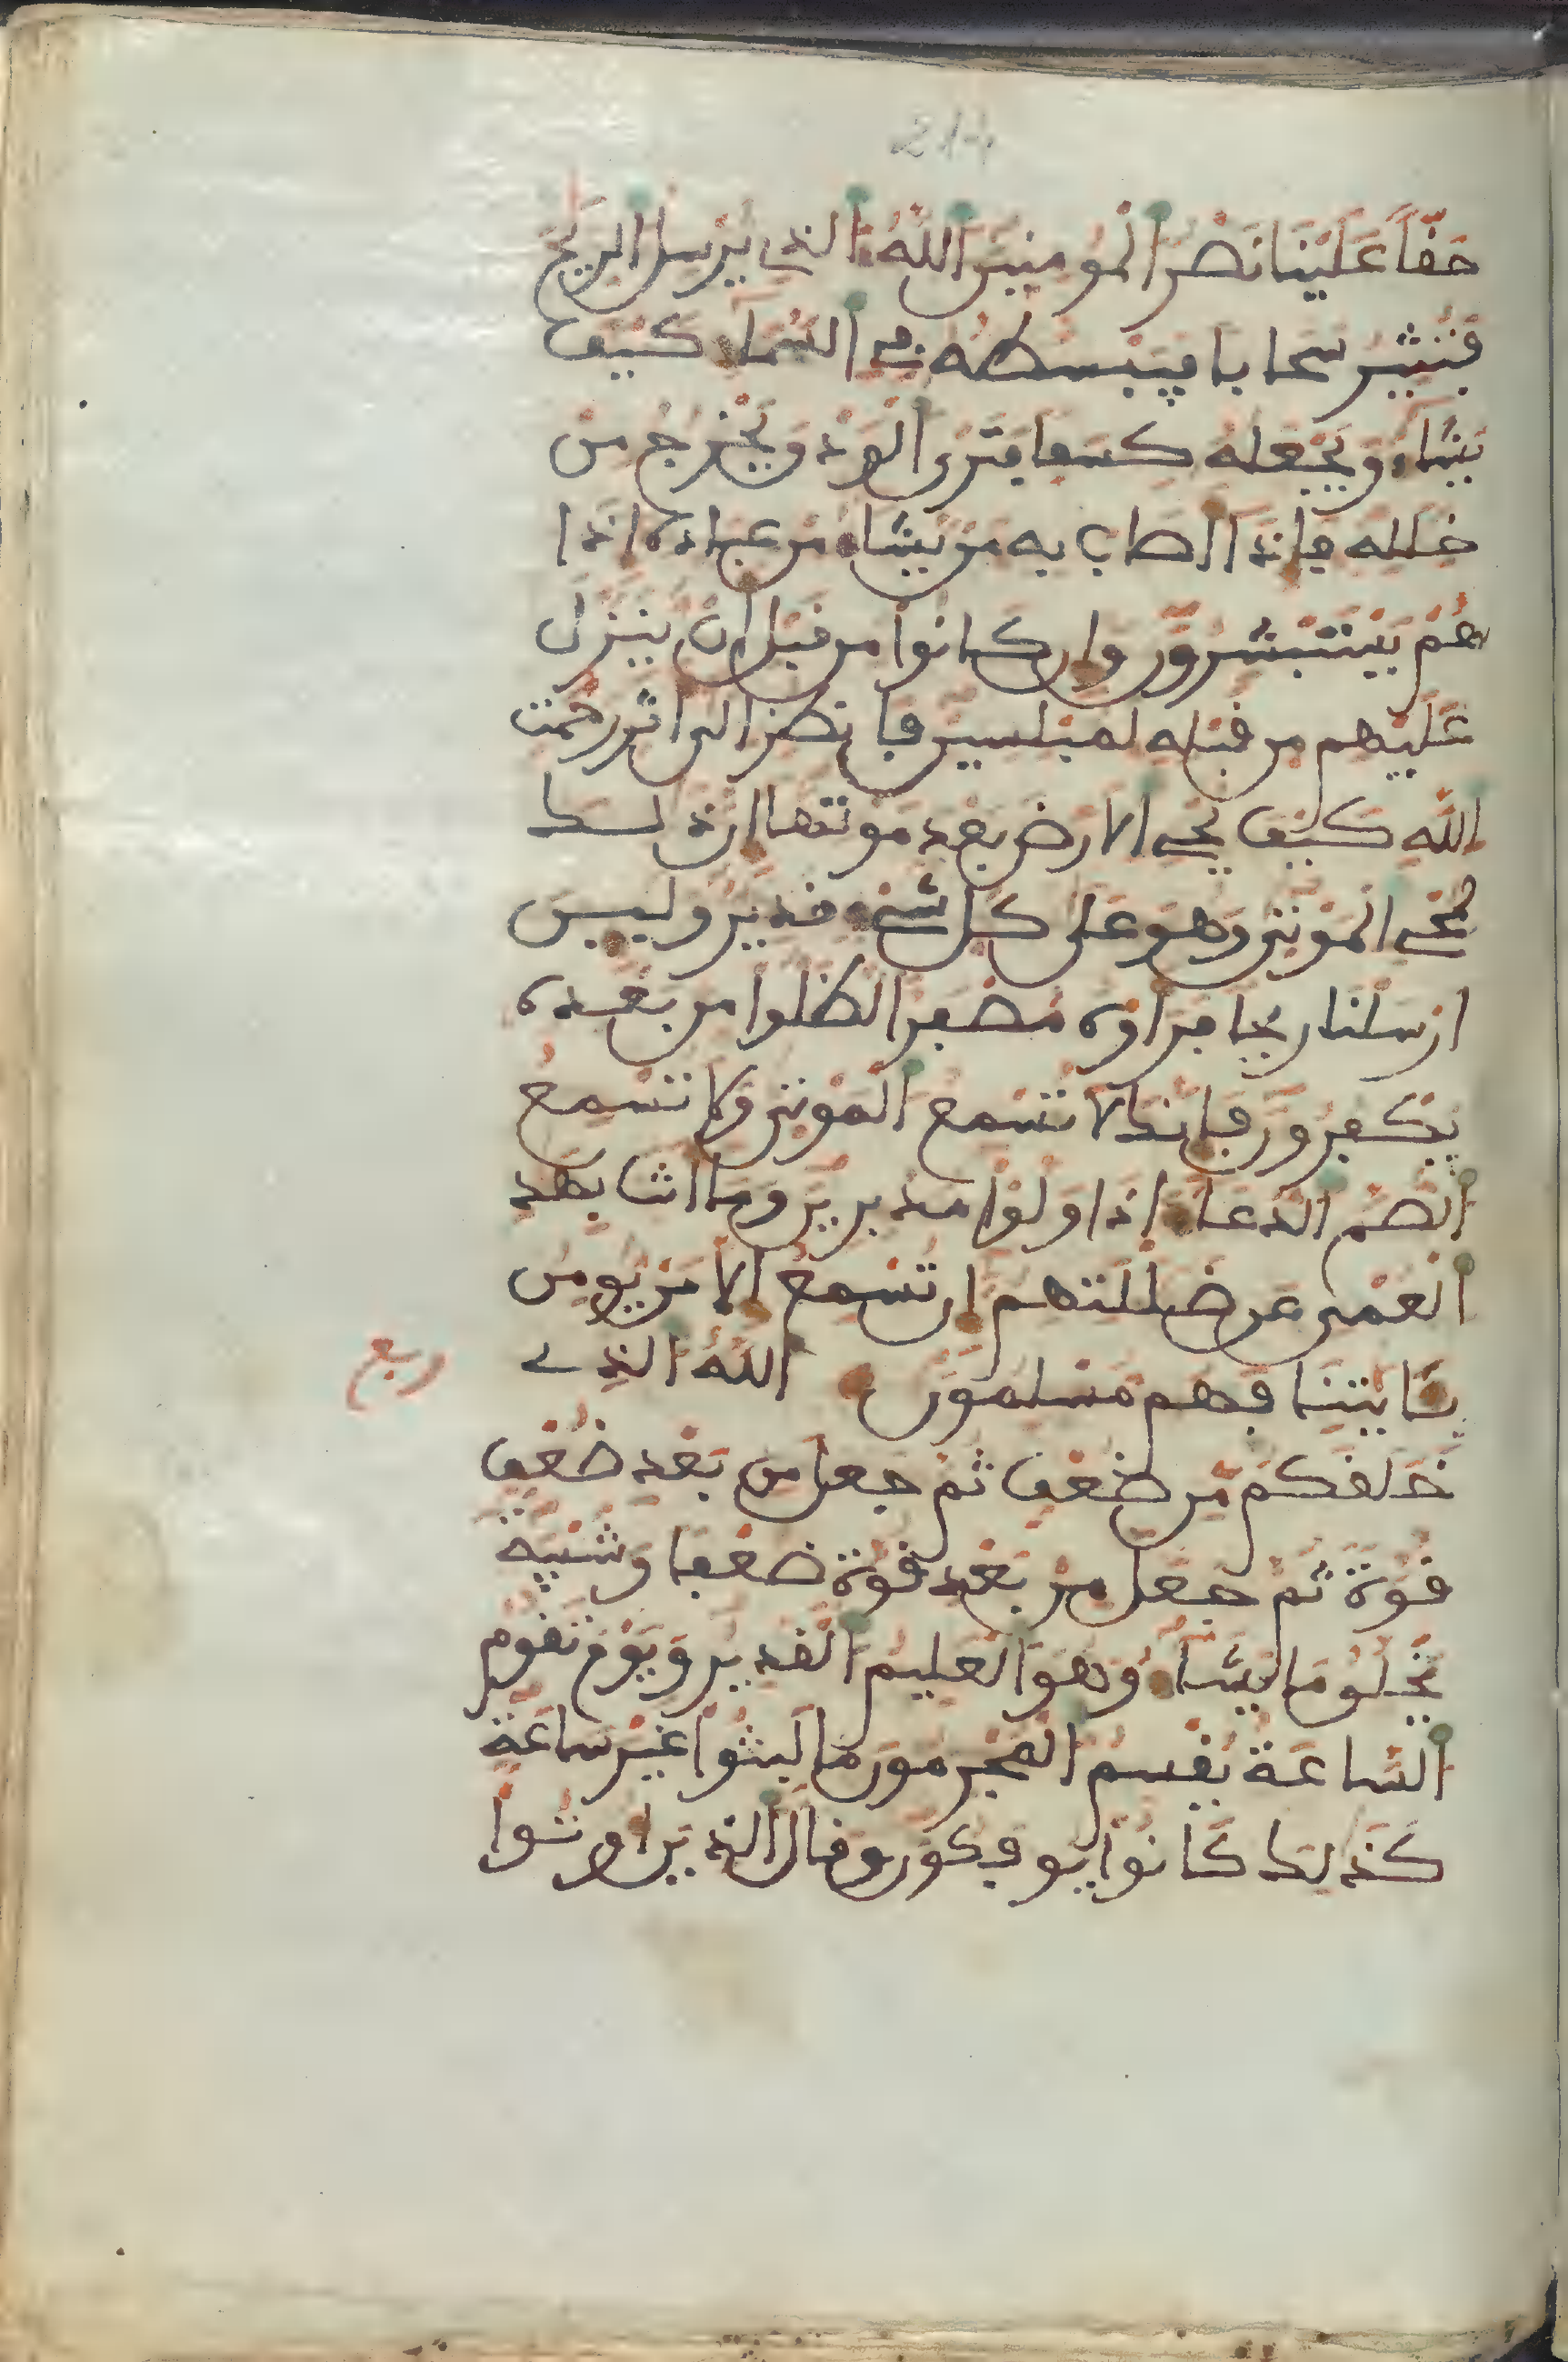 حقا علينا نصر المومنين الله الذي يرسل الريح
فتثير سحابا فيبسطه في السماء كيف
يشاء ويجعله كسفا فترى الودق يخرج من
خلله فاذا اصاب به من يشاء من عباده اذا
هم يستبشرون وان كانوا من قبل ان ينزل
عليهم من قبله لمبلسين فانظر الى اثر رحمت
الله كيف يحي الارض بعد موتها ان ذلك
لمحي الموتى وهو على كل شيء قدير ولين
ارسلنا ريحا فراوه مصفرا لظلوا من بعده
يكفرون فانك لا تسمع الموتى ولا تسمع
الصم الدعاء اذا ولوا مدبرين وما انت بهد
العمى عن ضللتهم ان تسمع الا من يومن
بئايتنا فهم مسلمون الله الذي
ربع
خلقكم من ضعف ثم جعل من بعد ضعف
قوة ثم جعل من بعد قوة ضعفا وشيبة
يخلق ما يشاء وهو العليم القدير ويوم تقوم
الساعة يقسم المجرمون ما لبثوا غير ساعة
كذلك كانوا يوفكون وقال الذين اوتوا